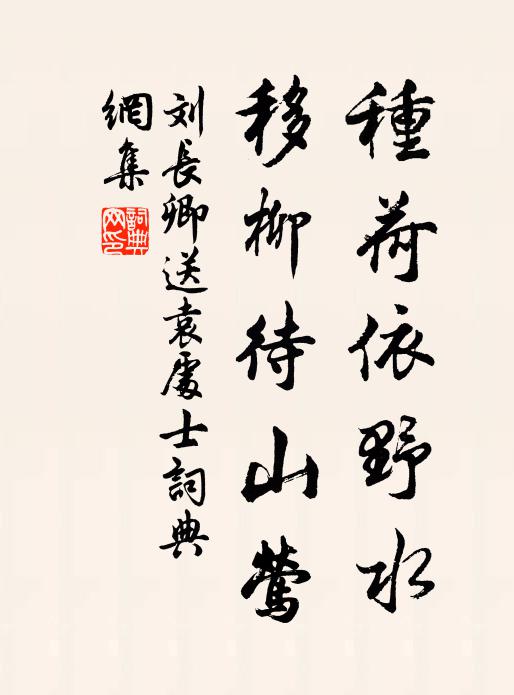 種荷依野水
移柳待山鶯
刘長卿送袁處士詞典
網集
詞典
网印